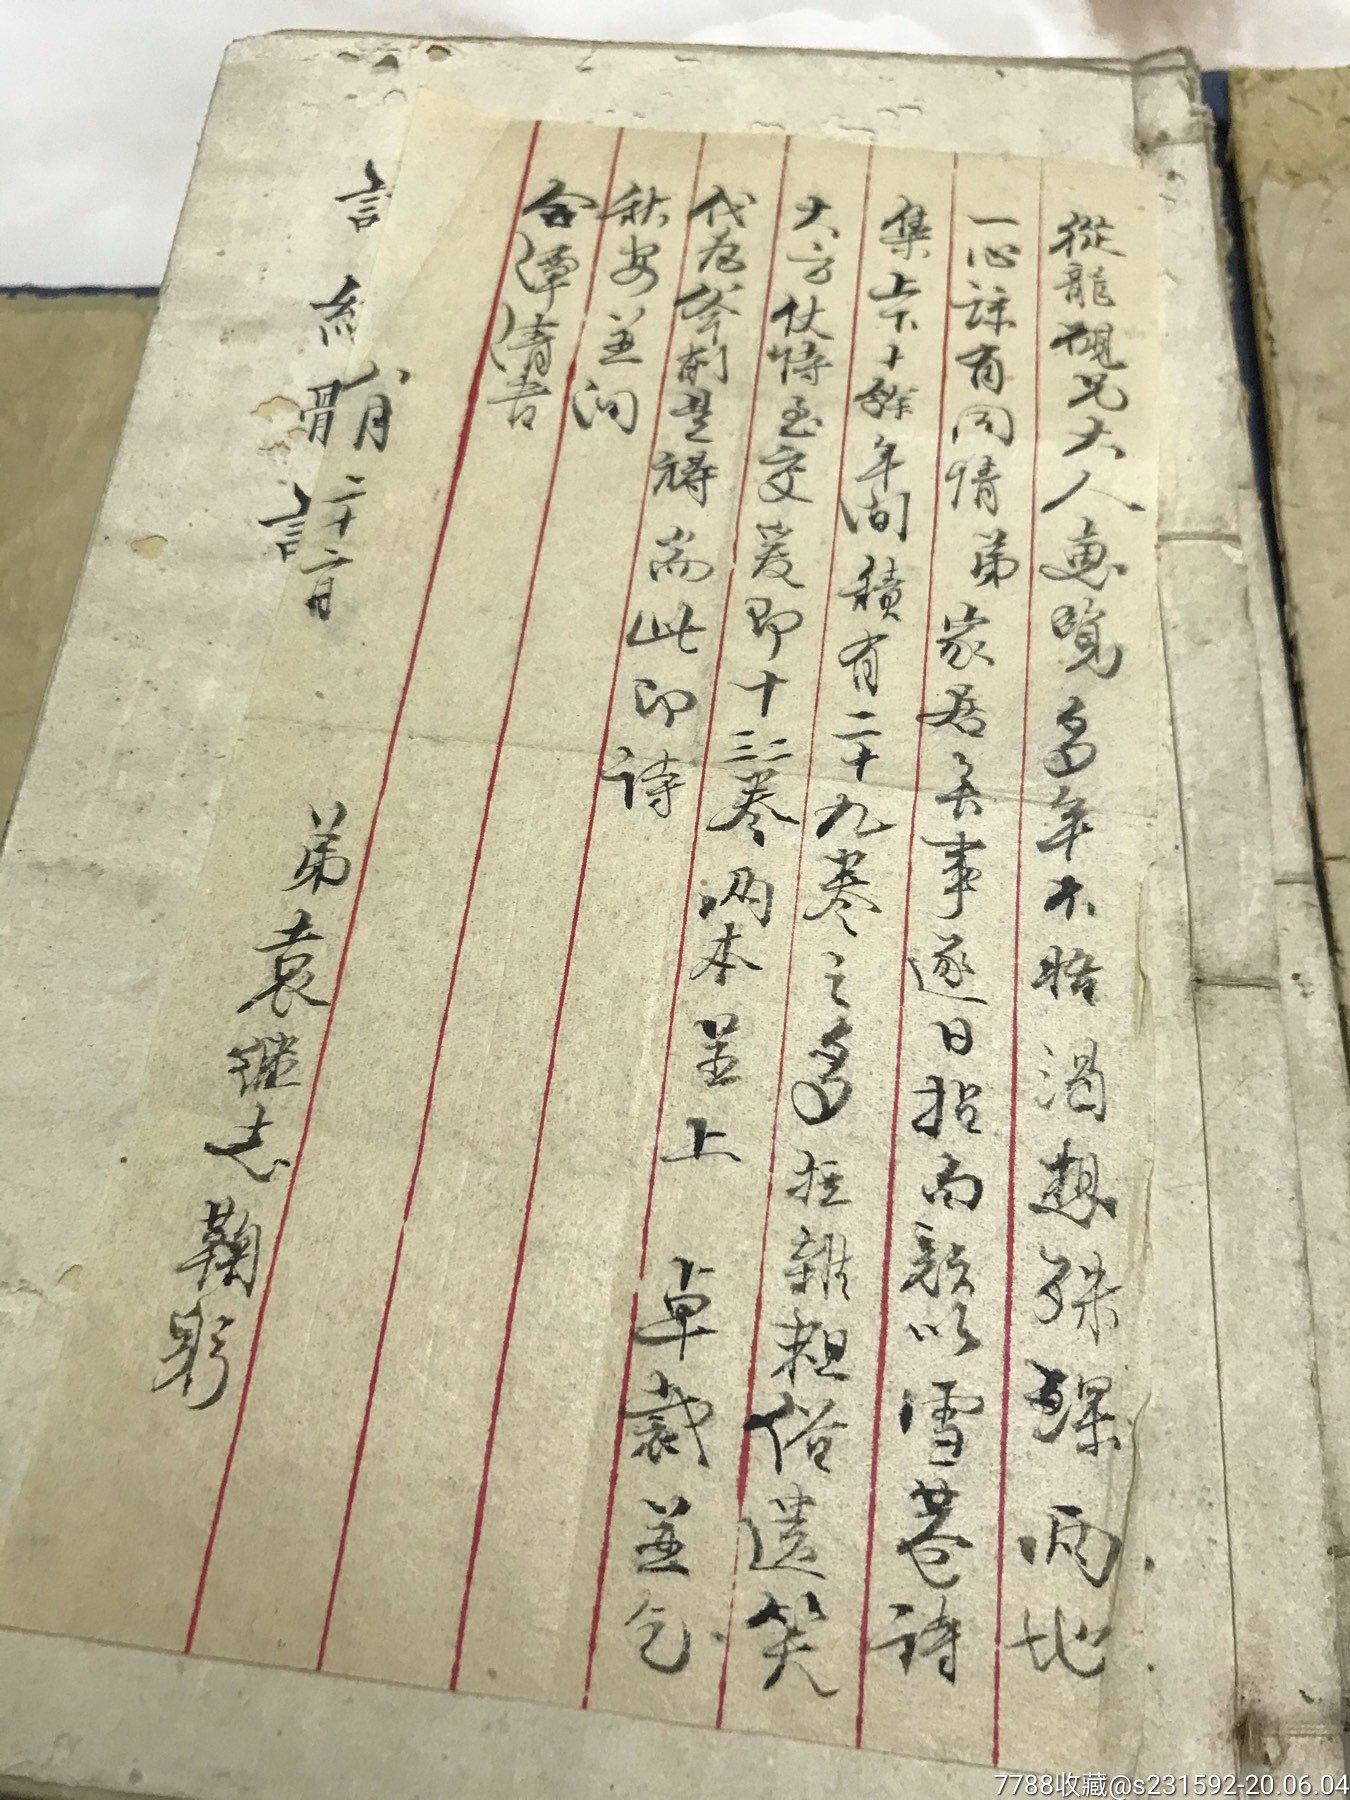 從龍硯兄大人惠覽多年不晤渴想殊深兩地
一心諒有同情弟家居無事逐日招而顏以雪巷詩
集上下十餘年間積有二十九卷之多拉雜粗俗遺笑
大方仗恃至交爰即十三二卷兩本呈上 卓裁並乞
代為斧削是禱耑此即請
秋安並問
合潭清吉
八月二十二日 弟袁繼志鞠躬
骨
7788收藏@s231592-20.06.04